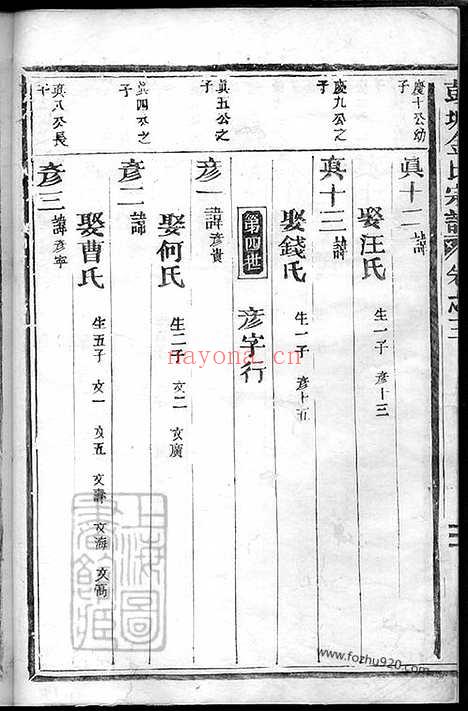 彭城金氏宗譜 卷之三
慶十公幼子
真十二 諱
娶汪氏 生一子 彦十三
慶九公之子
真十三 諱
娶錢氏 生一子 彦十五
第四世 彦字行
真五公之子
彦一 諱彦貴
真四公之子
彦二 諱
娶何氏 生二子 文二 文廣
真八公長子
彦三 諱彦寧
娶曹氏 生五子 文一 文五 文壽 文海 文高
上海圖書館藏
nayona.cn
www.fozhu920.com